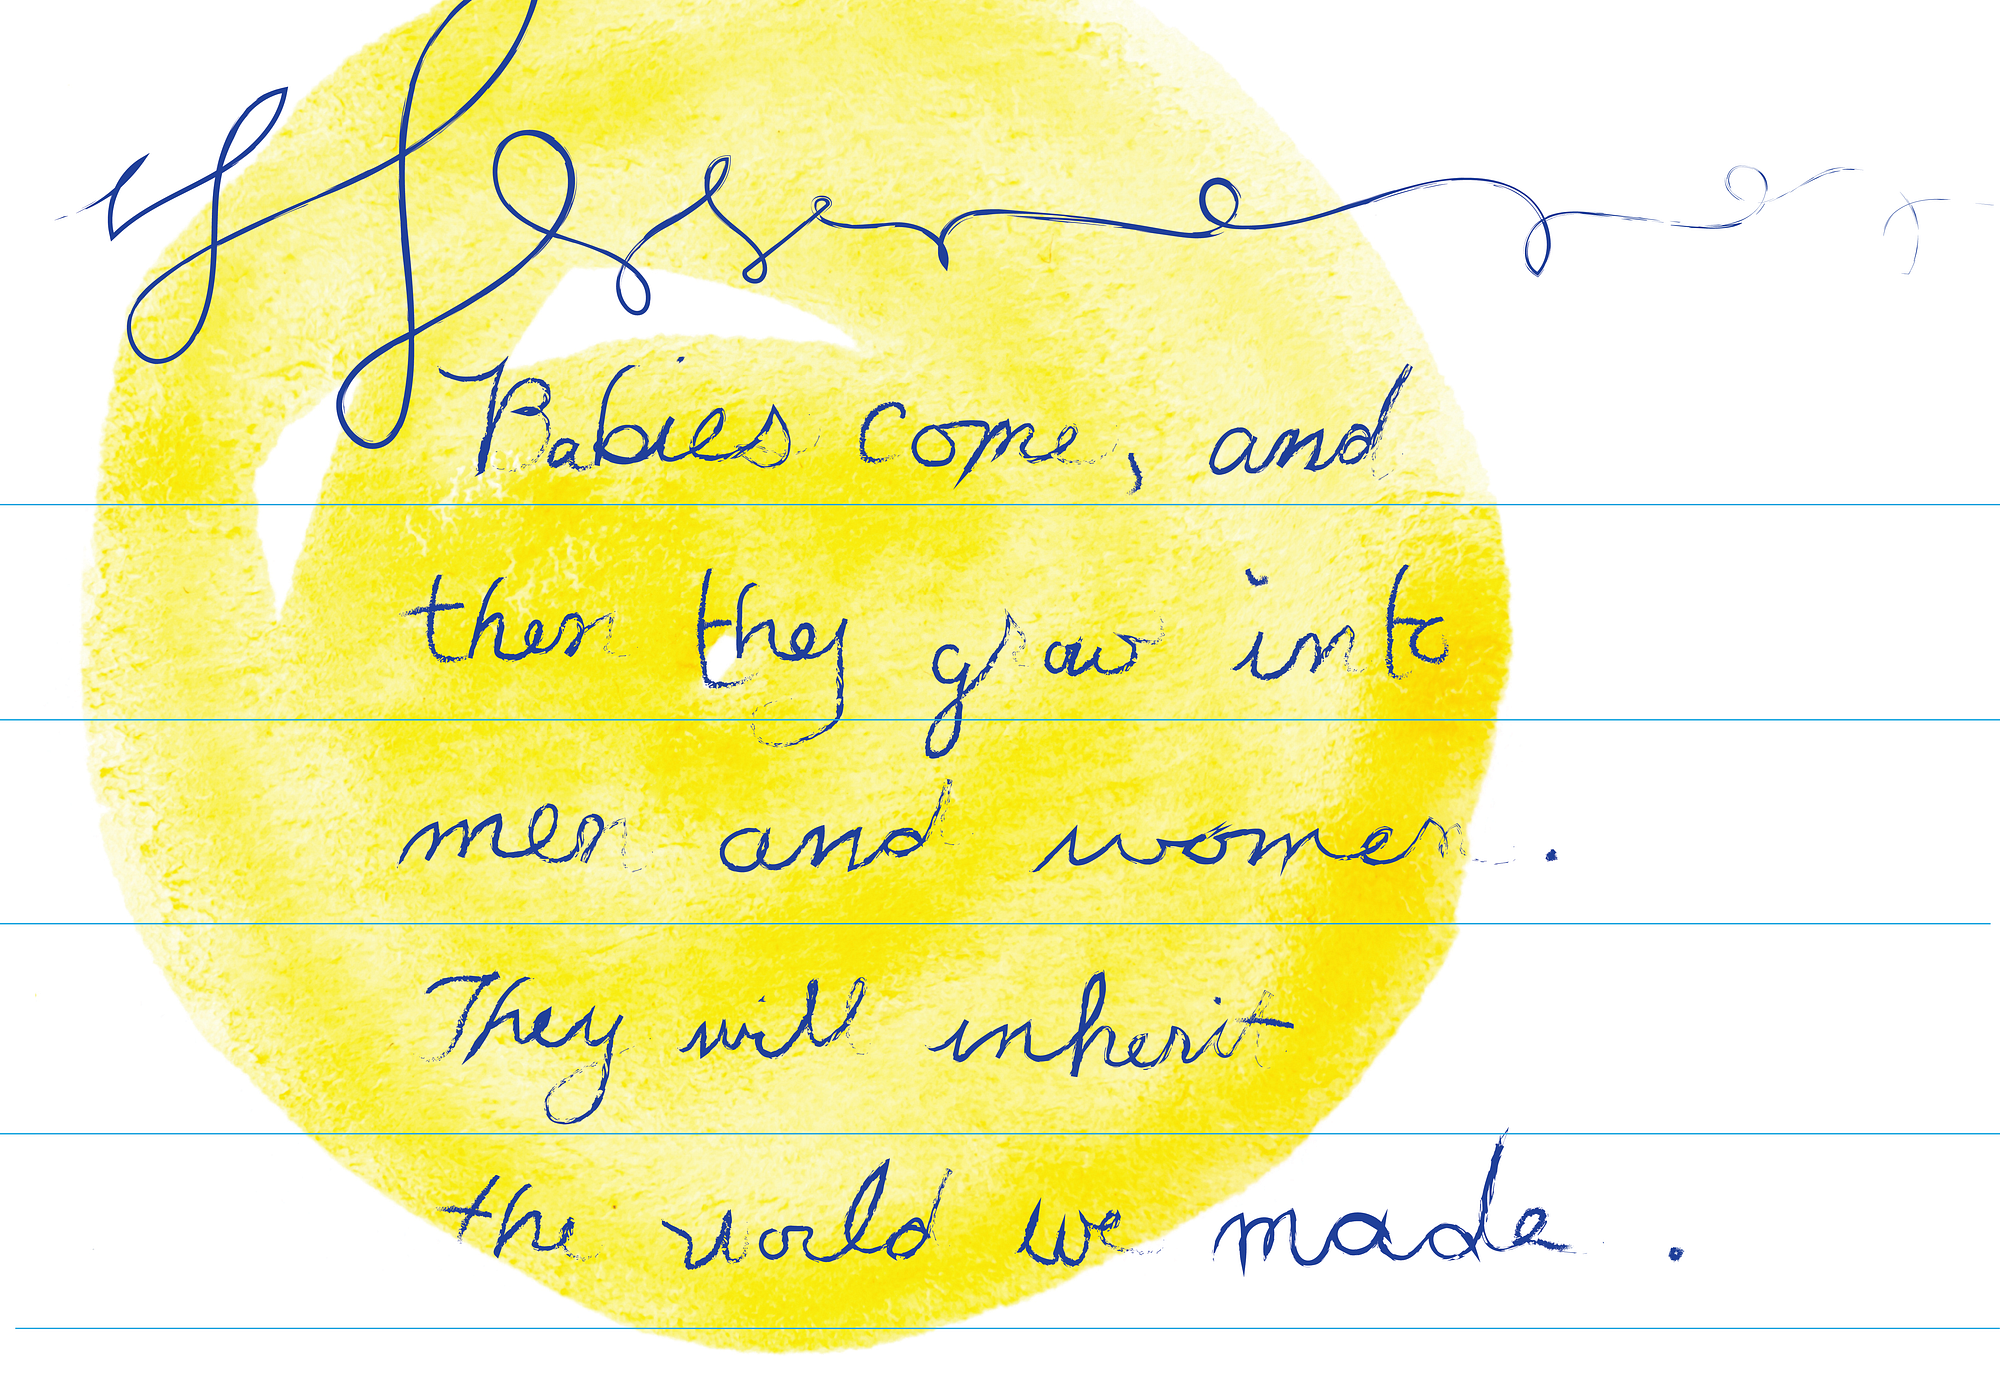 Babies come, and
then they grow into
men and women.
They will inherit
the world we made.